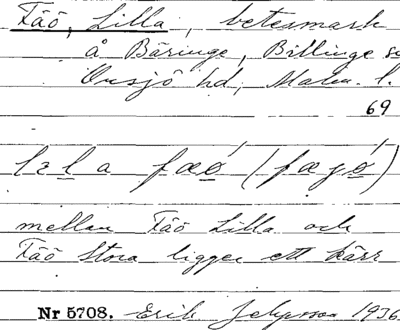 Fäö, Lilla, betesmark
å Bäringe, Billinge s
Onsjö hd, Malm. l.
69
lɛla fæó (fæjó)
mellan Fäö Lilla och
Fäö Stora ligger ett kärr
Nr 5708. Erik Jeppsson 1936